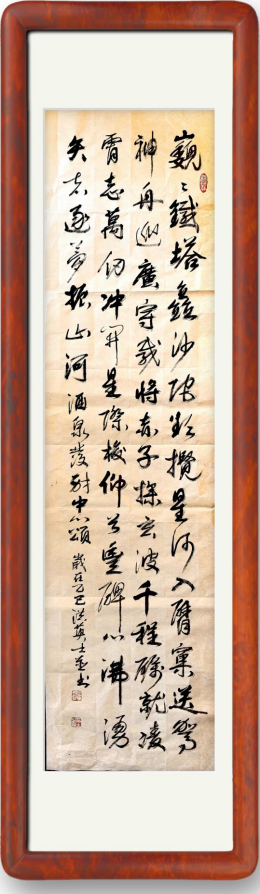 巍〻鐵塔矗沙陀欲攬星河入臂窠送駕
神舟巡廣宇載將赤子探玄波千程礪就凌
霄志萬仞冲開星際梭仰豐碑心沸湧
矢志逐夢振山河
酒泉發射中心頌
歲在乙巳洪英士並書